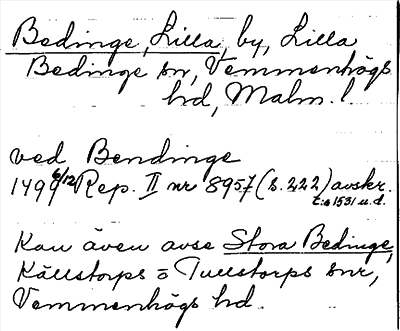 Bedinge, Lilla, by, Lilla
Bedinge sn, Vemmenhögs
hd, Malm. l.
ved Bendinge
1499 6/12 Rep. II nr 8957 (s. 222) avskr.
t:a 1531 u.d.
Kan även avse Stora Bedinge,
Källstorps o Tullstorps snr,
Vemmenhögs hd.